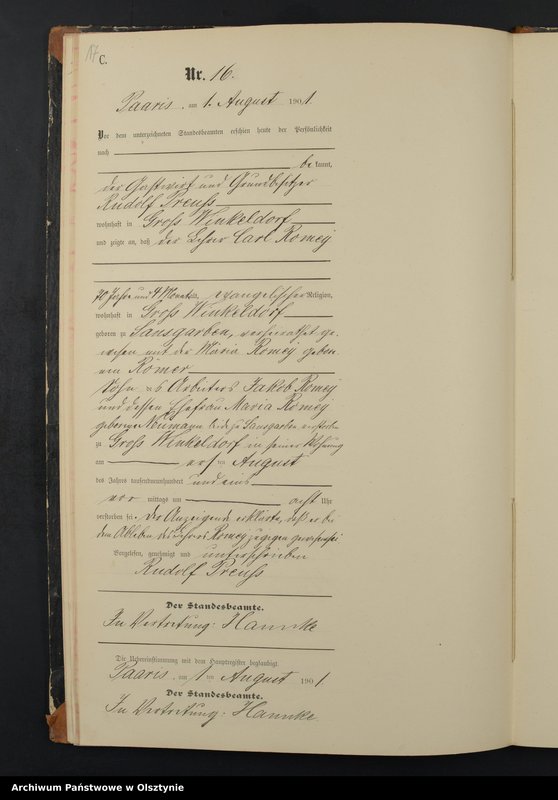 17
C.
Nr. 16.
Paaris am 1. August 1901.
Vor dem unterzeichneten Standesbeamten erschien heute der Persönlichkeit
nach
be kannt,
der Gastwirt und Grundbesitzer
Rudolf Preuß
wohnhaft in Gross Winkeldorf
und zeigte an, daß der Lehrer Carl Romey
70 Jahre und 4 Monate alt, evangelischer Religion,
wohnhaft in Gross Winkeldorf
geboren zu Sansgarben, verheirathet ge-
wesen mit der Maria Romey gebor-
nen Römer
Sohn des Arbeiters Jakob Romey
und dessen Ehefrau Maria Romey
geborene Neumann beide zu Sansgarben verstorben
zu Gross Winkeldorf in seiner Wohnung
am ersten August
des Jahres tausendneunhundert und eins
vor mittags um acht Uhr
verstorben sei. Der Anzeigende erklärte, daß er bei
dem Ableben des Lehrers Romey zugegen gewesen sei
Vorgelesen, genehmigt und unterschrieben
Rudolf Preuß
Der Standesbeamte.
In Vertretung: Hannke
Die Uebereinstimmung mit dem Hauptregister beglaubigt.
Paaris am 1 ten August 1901
Der Standesbeamte.
In Vertretung: Hannke.
Archiwum Państwowe w Olsztynie